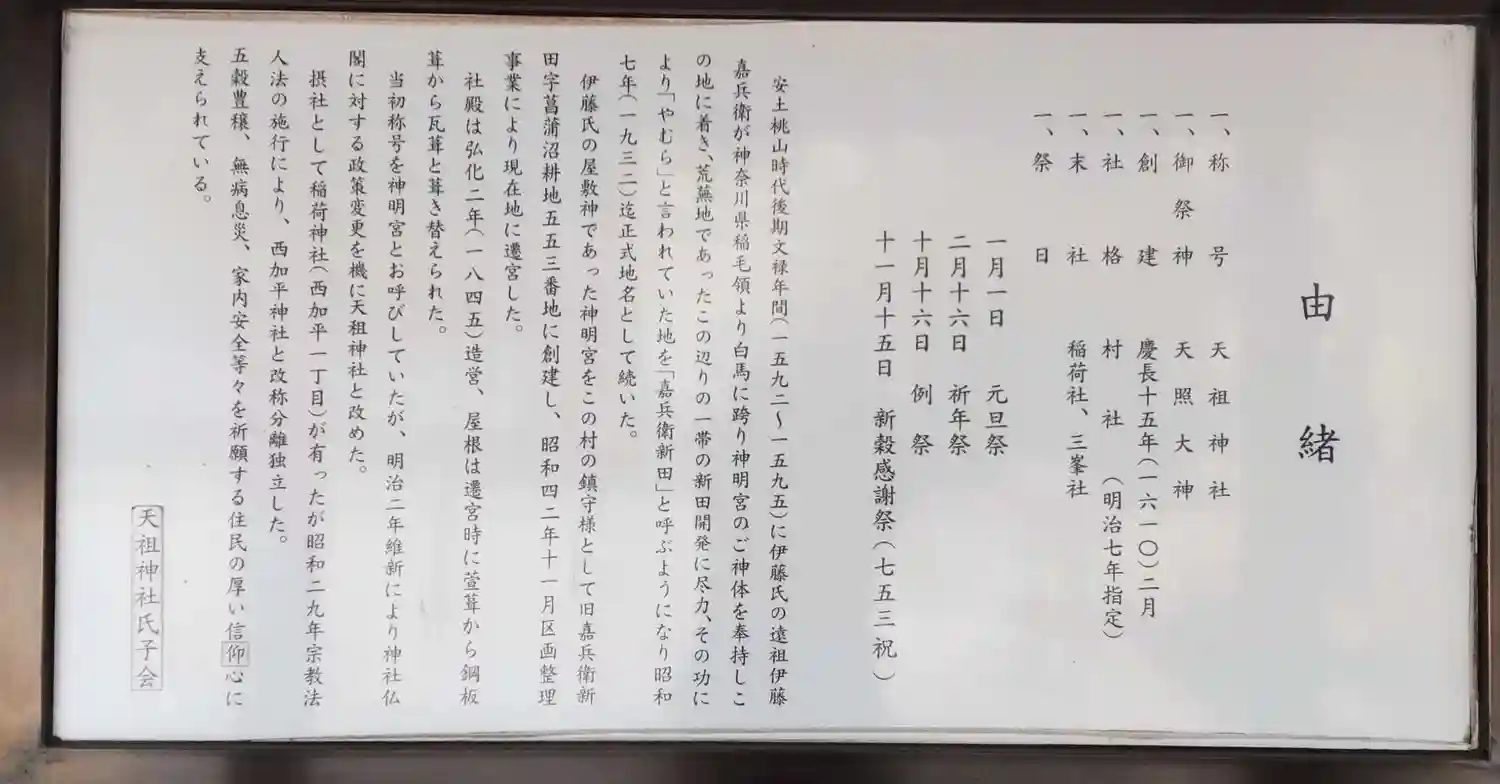 由緒
一、称号 天祖神社
一、御祭神 天照大神
一、創建 慶長十五年(一六一〇)二月
一、社格 村社 (明治七年指定)
一、末社 稲荷社、三峯社
一、祭日
一月一日 元旦祭
二月十六日 祈年祭
十月十六日 例祭
十一月十五日 新穀感謝祭(七五三祝)
安土桃山時代後期文禄年間(一五九二〜一五九五)に伊藤氏の遠祖伊藤
嘉兵衛が神奈川県稲毛領より白馬に跨り神明宮のご神体を奉持しこ
の地に着き、荒蕪地であったこの辺りの一帯の新田開発に尽力、その功に
より「やむら」と言われていた地を「嘉兵衛新田」と呼ぶようになり昭和
七年(一九三二)迄正式地名として続いた。
伊藤氏の屋敷神であった神明宮をこの村の鎮守様として旧嘉兵衛新
田字菖蒲沼耕地五五三番地に創建し、昭和四二年十一月区画整理
事業により現在地に遷宮した。
社殿は弘化二年(一八四五)造営、屋根は遷宮時に萱葺から鋼板
葺から瓦葺と葺き替えられた。
当初称号を神明宮とお呼びしていたが、明治二年維新により神社仏
閣に対する政策変更を機に天祖神社と改めた。
摂社として稲荷神社(西加平一丁目)が有ったが昭和二九年宗教法
人法の施行により、西加平神社と改称分離独立した。
五穀豊穣、無病息災、家内安全等々を祈願する住民の厚い信仰心に
支えられている。
天祖神社氏子会